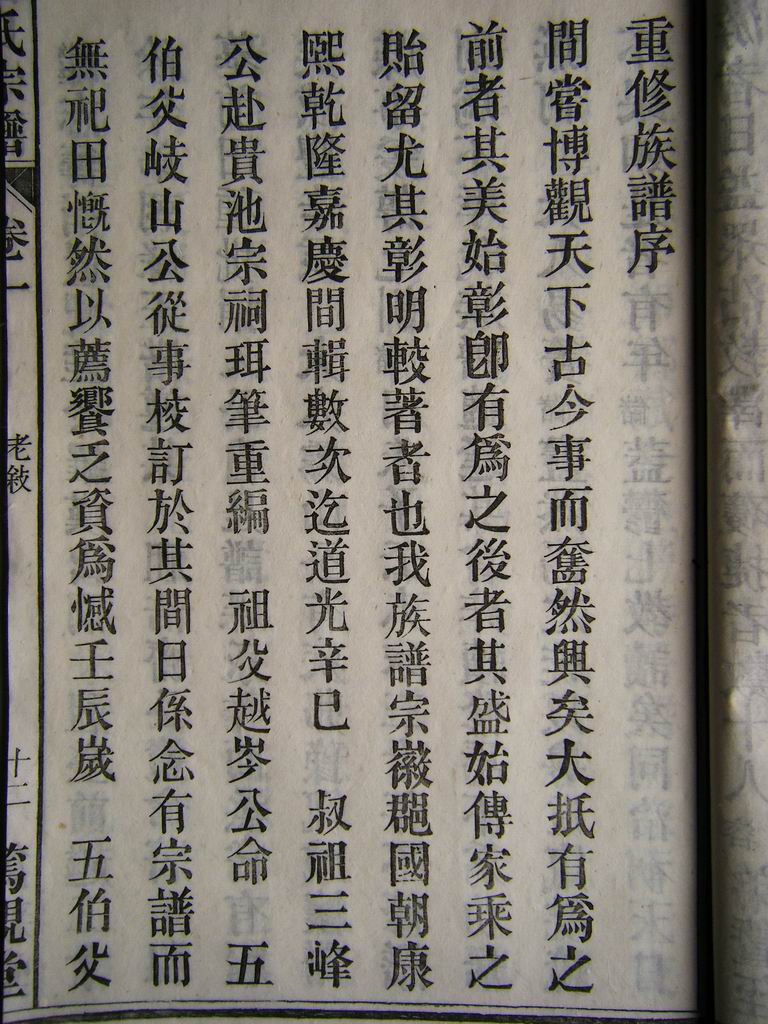 重修族譜序
間嘗博觀天下古今事而奮然興矣大扺有爲之
前者其美始彰卽有爲之後者其盛始傳家乘之
貽留尤其彰明較著者也我族譜宗徽郡國朝康
熙乾隆嘉慶間輯數次迄道光辛巳 叔祖三峰
公赴貴池宗祠珥筆重編 祖父越岑公命 五
伯父岐山公從事校訂於其間日係念有宗譜而
無祀田慨然以薦饗之資爲憾壬辰歲 五伯父
氏宗譜 卷一 老敍 十二 篤親堂